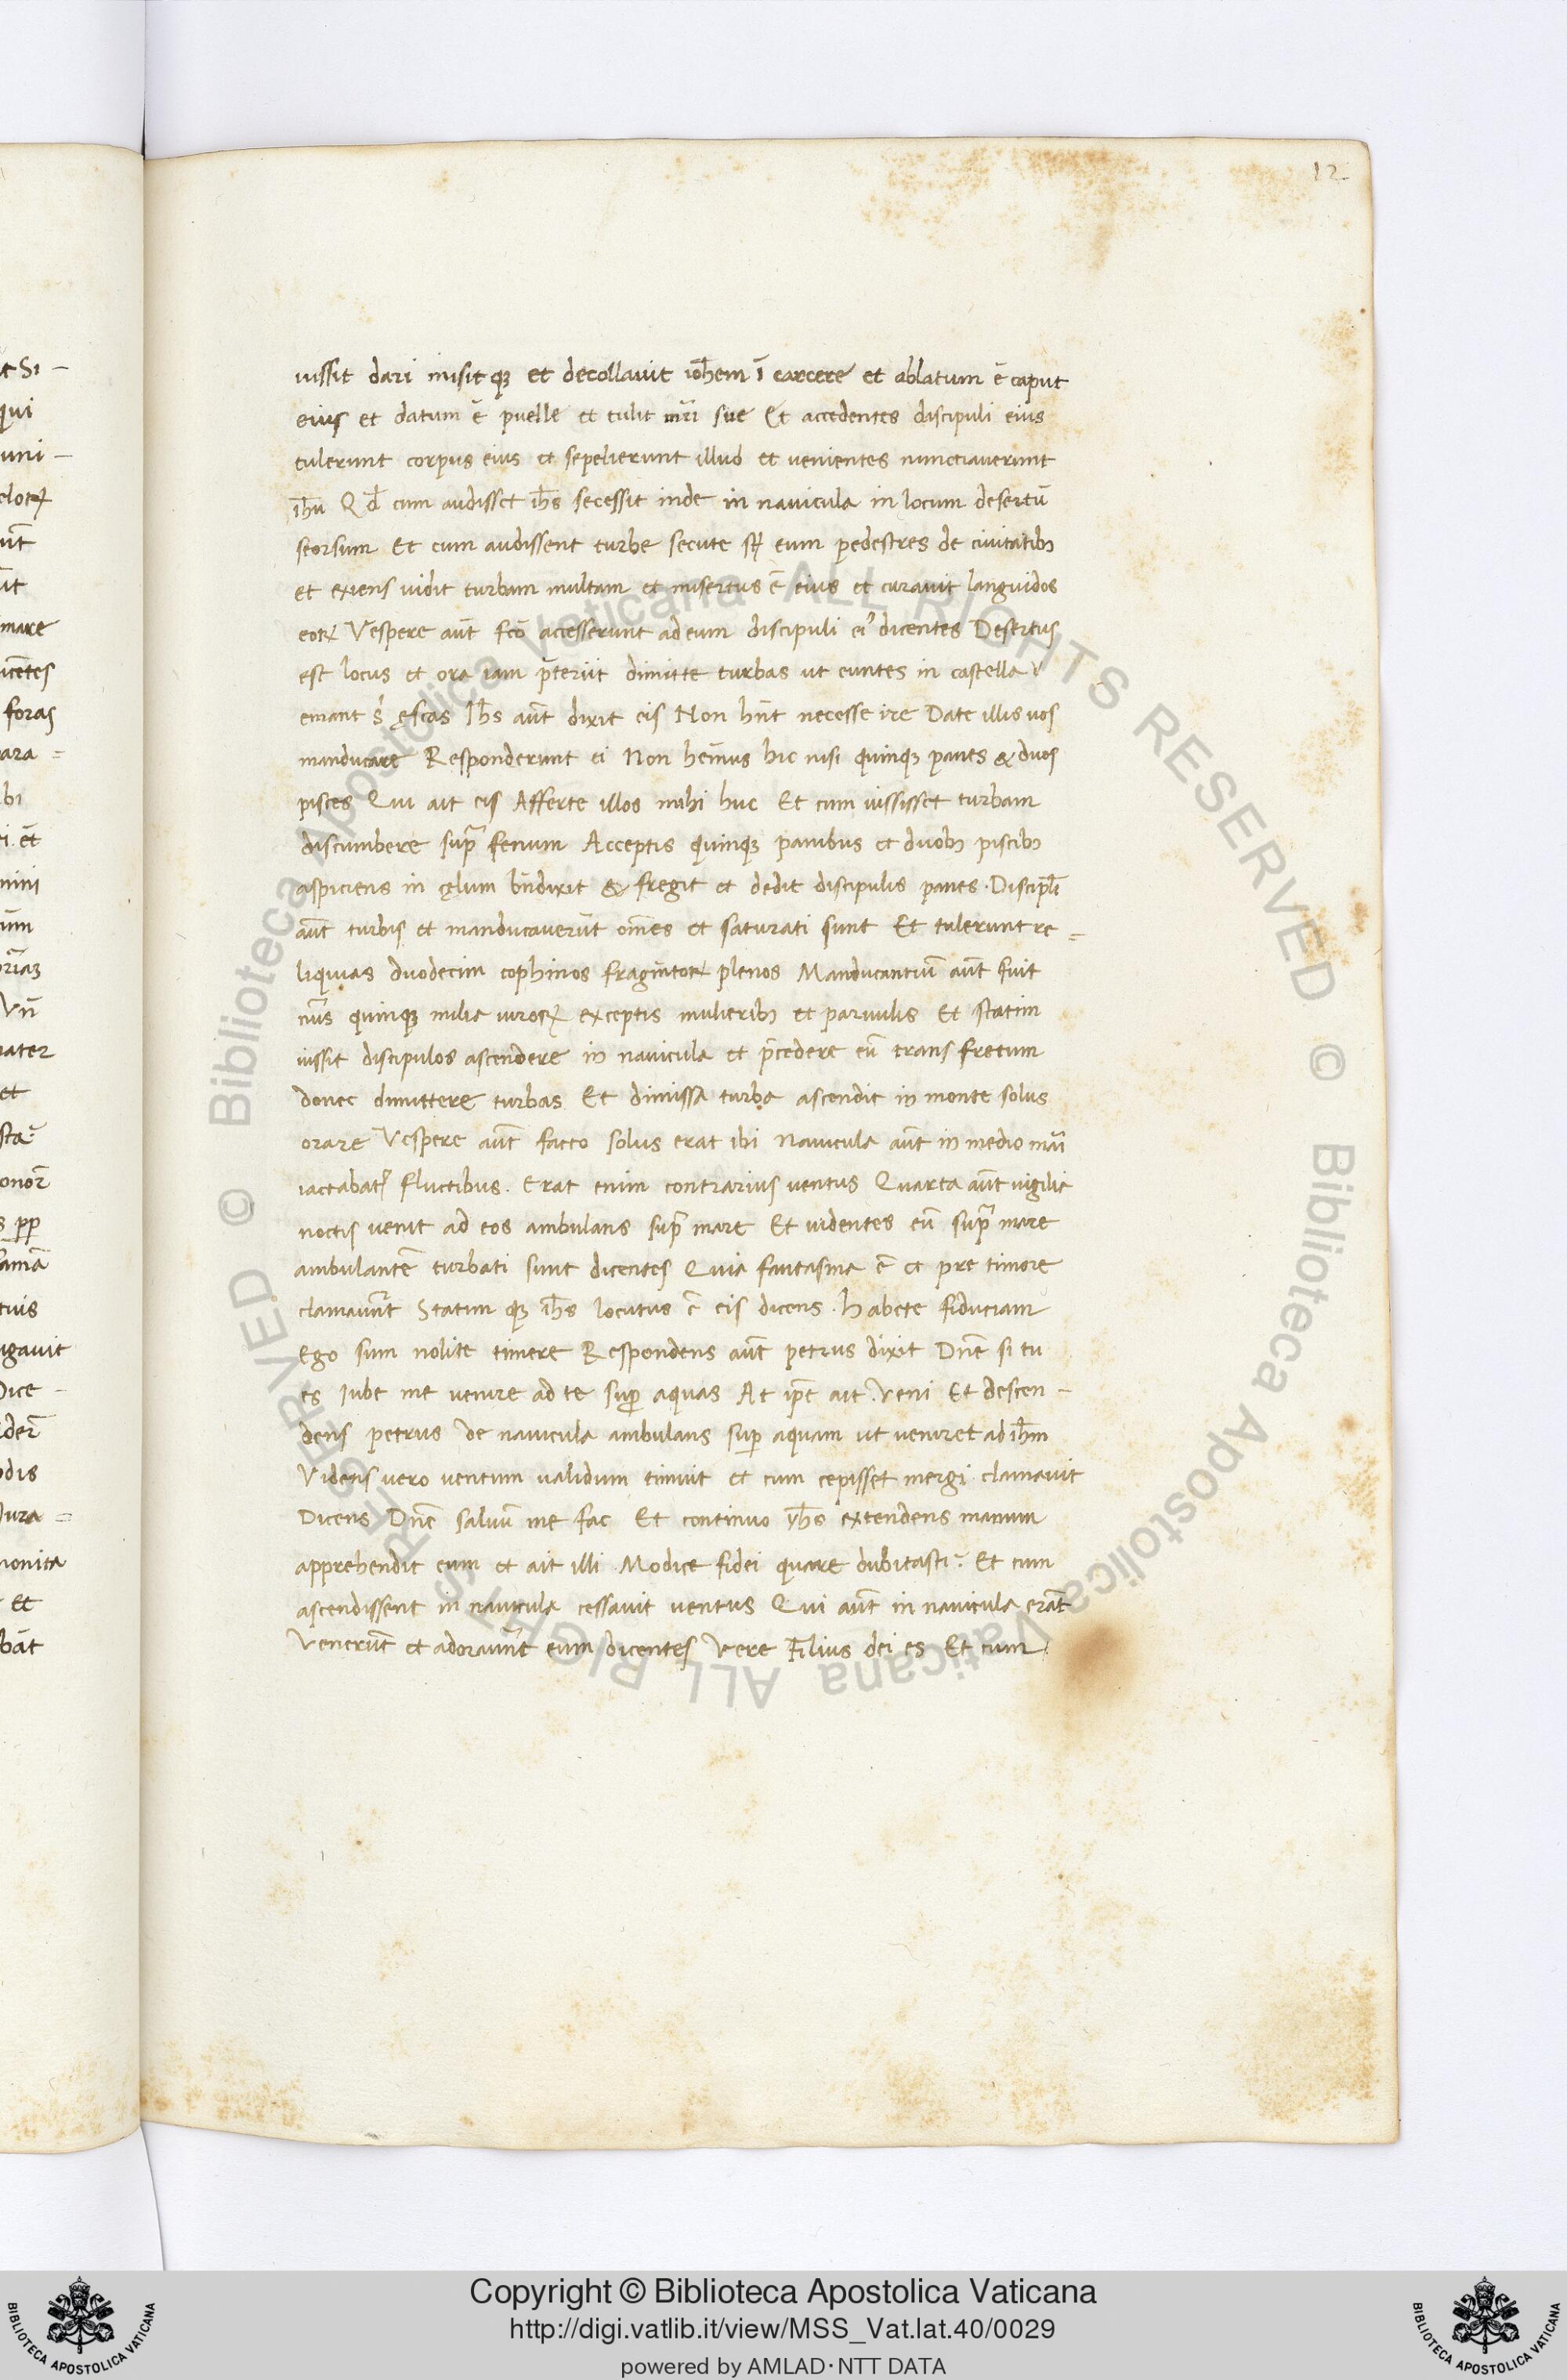 12
iussit dari misitqȝ et decollauit ioħem ī carcere et ablatum ē caput
eius et datum ē puelle et tulit mr̄i sue Et accedentes discipuli eius
tulerunt corpus eius et sepelierunt illud et uenientes nunctiauerunt
iħu Qd̄ cum audisset iħs secessit inde in nauicula in locum desertū
seorsum Et cum audissent turbe secute sꝉ eum pedestres de ciuitatibȝ
et exiens uidit turbam multam et misertus ē eius et curauit languidos
eoꝝ Vespere aūt fco̅ accesserunt ad eum discipuli ei⁹ dicentes Desertus
est locus et ora iam p̄teriit dimitte turbas ut euntes in castella
emant s̓ ęscas Iħs aūt dixit eis Non hn̄t necesse ire Date illis uos
manducare Responderunt ei Non hem̄us hic nisi quinqȝ panes & duos
pisces Qui ait eis Afferte illos mihi huc Et cum iussisset turbam
discumbere sup̄ fenum Acceptis quinqȝ panibus et duobȝ piscibȝ
aspiciens in cęlum bn̄dixit & fregit et dedit discipulis panes . Discipl̄i
aūt turbis et manducauerūt om̄es et saturati sunt Et tulerunt re=
liquias duodecim cophinos fragm̄toꝝ plenos Manducantiū aūt fuit
nūs quinqȝ milia uiroꝝ exceptis mulieribȝ et paruulis Et statim
iussit discipulos ascendere in nauicula et p̄cedere eū trans fretum
donec dimittere turbas Et dimissa turba ascendit in monte solus
orare Vespere aūt facto solus erat ibi Nauicula aūt in medio mar̄i
iactabat᷑ fluctibus . Erat enim contrarius uentus Quarta aūt uigilia
noctis uenit ad eos ambulans sup̄ mare Et uidentes eū sup̄ mare
ambulantē turbati sunt dicentes Quia fantasma ē et pre timore
clamauer̄t Statim qȝ iħs locutus ē eis dicens . habete fiduciam
Ego sum nolite timere Respondens aūt petrus dixit Dn̄e si tu
es Iube me uenire ad te sup̄ aquas At ip̄e ait . Veni Et descen-
dens petrus de nauicula ambulans sup̄ aquam ut ueniret ad iħm
Videns uero uentum ualidum timuit et cum cepisset mergi clamauit
Dicens Dn̄e saluū me fac Et continuo yħs extendens manum
apprehendit eum et ait illi Modice fidei quare dubitasti? Et cum
ascendissent in nauicula cessauit uentus Qui aūt in nauicula erāt
Venerūt et adorauer̄t eum dicentes Vere Filius dei es Et cum
Copyright © Biblioteca Apostolica Vaticana
http://digi.vatlib.it/view/MSS_Vat.lat.40/0029
powered by AMLAD·NTT DATA